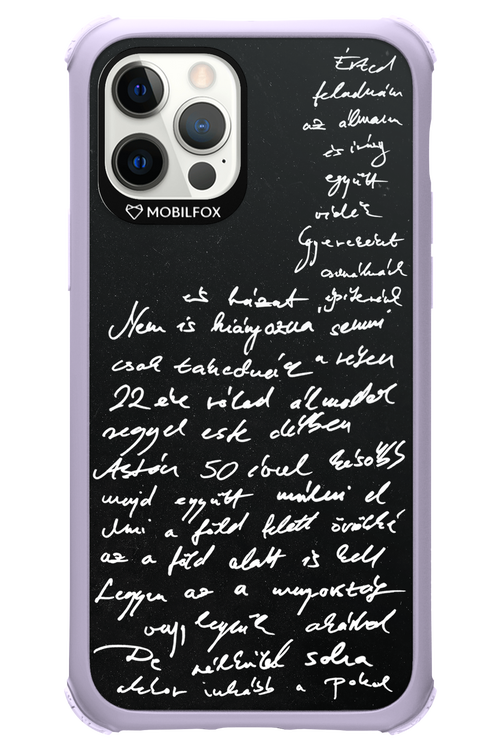 MOBILFOX
Érted
feladnám
az álmaim
és
együtt
Gyerekeket
csinálnánk
és házat építenénk
Nem is hiányozna semmi
csak a
22 éve rólad álmodok
reggel este délben
Aztán 50 évvel később
majd együtt múlni el
Ami a föld felett örökké
az a föld alatt is kell
Legyen az a mennyország
vagy legyünk akárhol
De nélküled soha
akkor inkább a Pokol